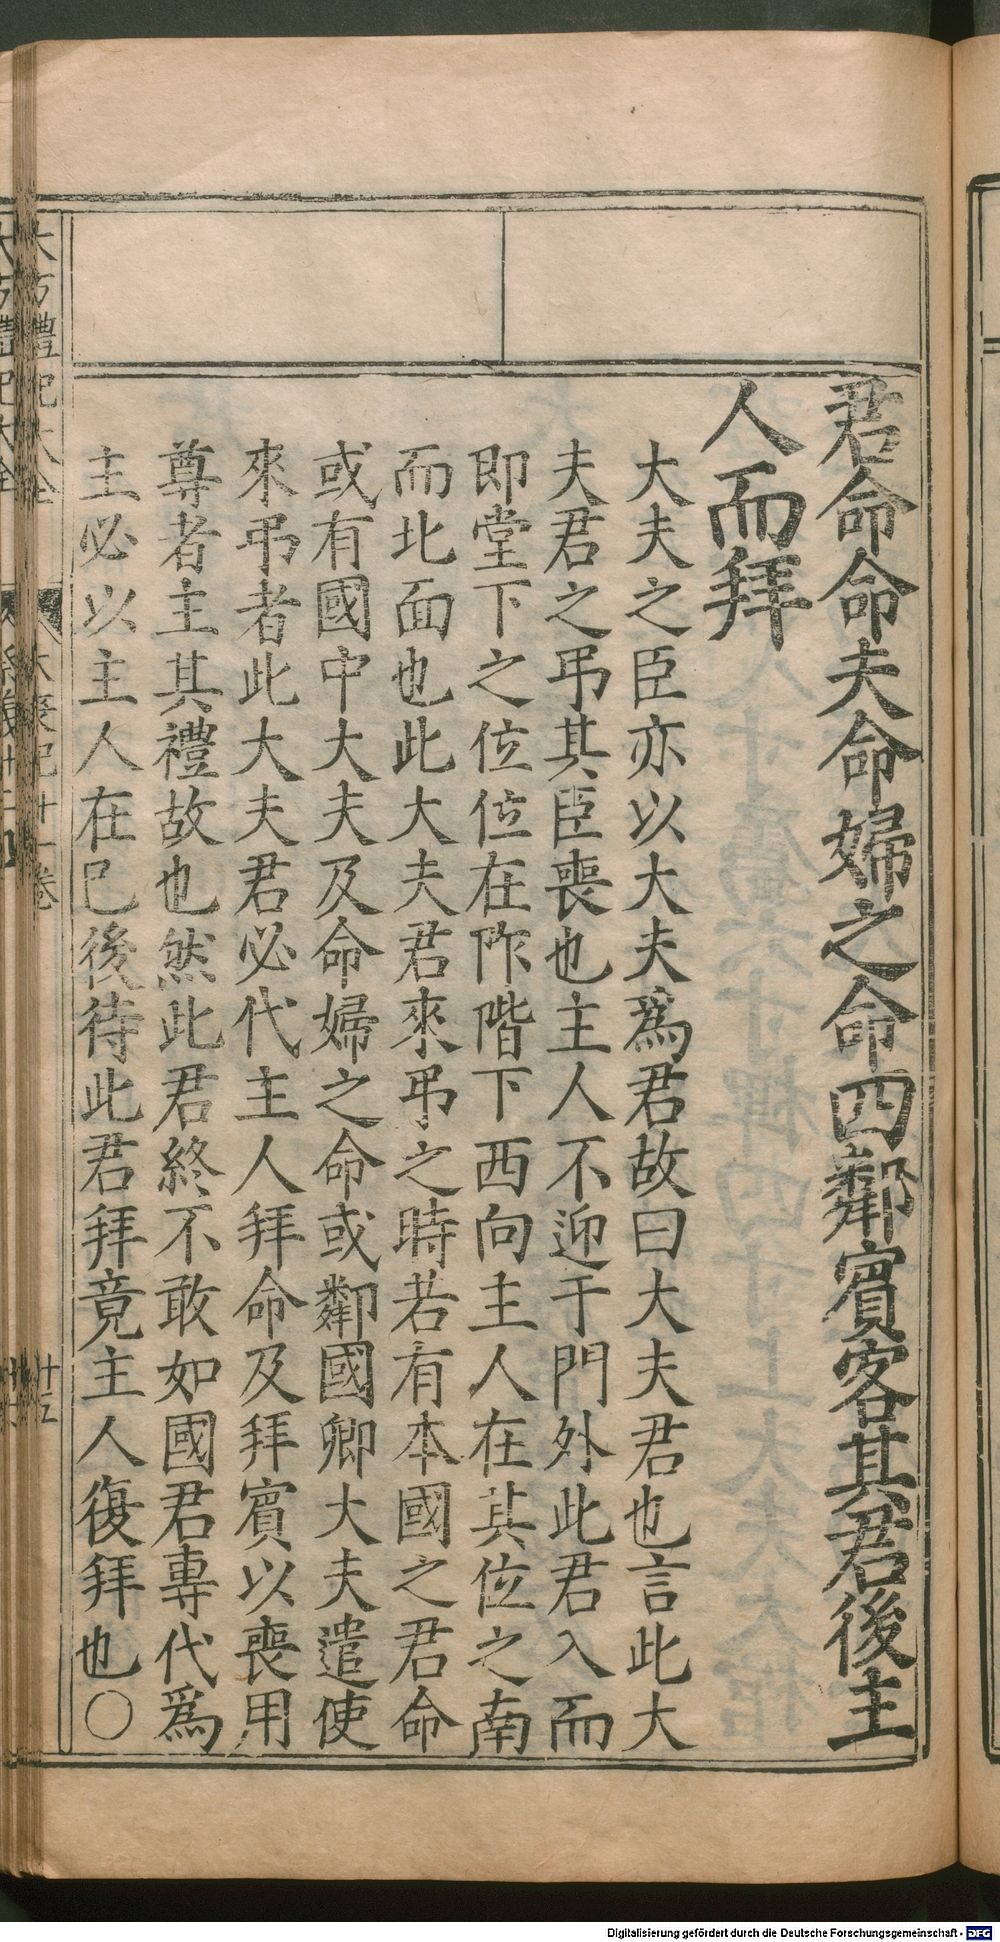 君命命夫命婦之命四鄰賓客其君後主
人而拜
大夫之臣亦以大夫爲君故曰大夫君也言此大
夫君之弔其臣喪也主人不迎于門外此君入而
即堂下之位位在阼階下西向主人在其位之南
而北面也此大夫君來弔之時若有本國之君命
或有國中大夫及命婦之命或鄰國卿大夫遣使
來弔者此大夫君必代主人拜命及拜賓以喪用
尊者主其禮故也然此君終不敢如國君專代爲
主必以主人在巳後待此君拜竟主人復拜也〇
Digitalisierung gefördert durch die Deutsche Forschungsgemeinschaft - DFG